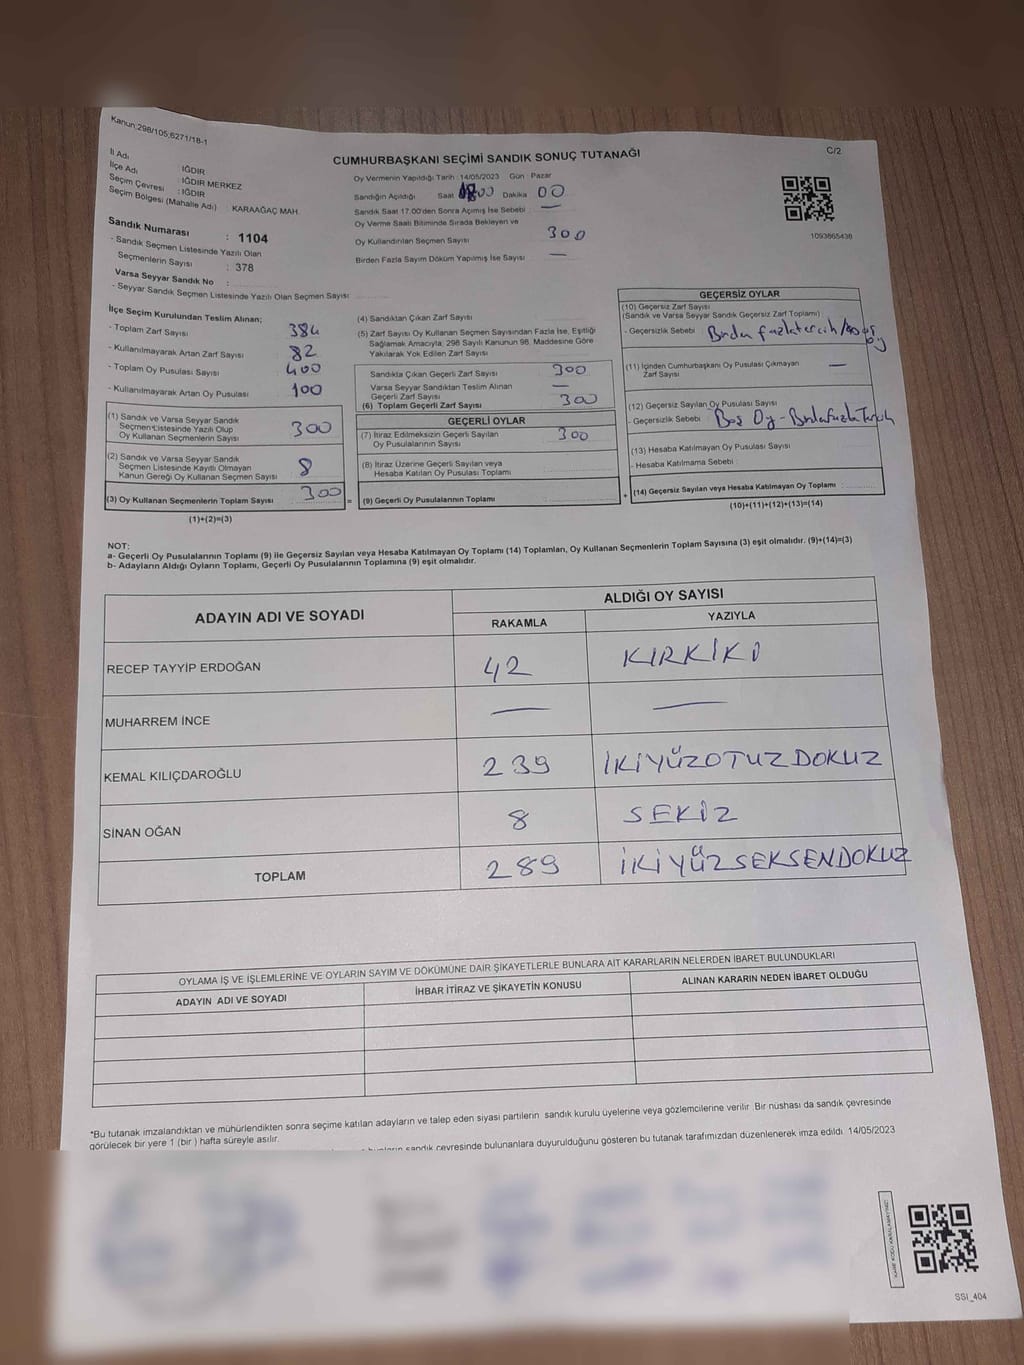 Kanun:298/105,6271/18-1
C/2
CUMHURBAŞKANI SEÇİMİ SANDIK SONUÇ TUTANAĞI
İl Adı : IĞDIR
İlçe Adı : IĞDIR MERKEZ
Seçim Çevresi : IĞDIR
Seçim Bölgesi (Mahalle Adı) : KARAAĞAÇ MAH.
Sandık Numarası : 1104
- Sandık Seçmen Listesinde Yazılı Olan
Seçmenlerin Sayısı : 378
Varsa Seyyar Sandık No :
- Seyyar Sandık Seçmen Listesinde Yazılı Olan Seçmen Sayısı
Oy Vermenin Yapıldığı Tarih : 14/05/2023 Gün : Pazar
Sandığın Açıldığı Saat Dakika 00
Sandık Saat 17.00'den Sonra Açımış İse Sebebi —
Oy Verme Saati Bitiminde Sırada Bekleyen ve
Oy Kullandırılan Seçmen Sayısı 300
Birden Fazla Sayım Döküm Yapılmış İse Sayısı —
1093865438
İlçe Seçim Kurulundan Teslim Alınan;
- Toplam Zarf Sayısı 384
- Kullanılmayarak Artan Zarf Sayısı 82
- Toplam Oy Pusulası Sayısı 400
- Kullanılmayarak Artan Oy Pusulası 100
(1) Sandık ve Varsa Seyyar Sandık
Seçmen Listesinde Yazılı Olup
Oy Kullanan Seçmenlerin Sayısı 300
(2) Sandık ve Varsa Seyyar Sandık
Seçmen Listesinde Kayıtlı Olmayan
Kanun Gereği Oy Kullanan Seçmen Sayısı 8
(3) Oy Kullanan Seçmenlerin Toplam Sayısı 300 =
(1)+(2)=(3)
(4) Sandıktan Çıkan Zarf Sayısı
(5) Zarf Sayısı Oy Kullanan Seçmen Sayısından Fazla İse, Eşitliği
Sağlamak Amacıyla, 298 Sayılı Kanunun 98. Maddesine Göre
Yakılarak Yok Edilen Zarf Sayısı
Sandıkta Çıkan Geçerli Zarf Sayısı 300
Varsa Seyyar Sandıktan Teslim Alınan
Geçerli Zarf Sayısı —
(6) Toplam Geçerli Zarf Sayısı 300
GEÇERLİ OYLAR
(7) İtiraz Edilmeksizin Geçerli Sayılan
Oy Pusulalarının Sayısı 300
(8) İtiraz Üzerine Geçerli Sayılan veya
Hesaba Katılan Oy Pusulası Toplamı
(9) Geçerli Oy Pusulalarının Toplamı +
GEÇERSİZ OYLAR
(10) Geçersiz Zarf Sayısı
(Sandık ve Varsa Seyyar Sandık Geçersiz Zarf Toplamı)
- Geçersizlik Sebebi : Birden fazla tercih / Boş oy
(11) İçinden Cumhurbaşkanı Oy Pusulası Çıkmayan
Zarf Sayısı —
(12) Geçersiz Sayılan Oy Pusulası Sayısı
- Geçersizlik Sebebi : Boş Oy - Birden fazla Tercih
(13) Hesaba Katılmayan Oy Pusulası Sayısı
- Hesaba Katılmama Sebebi :
(14) Geçersiz Sayılan veya Hesaba Katılmayan Oy Toplamı
(10)+(11)+(12)+(13)=(14)
NOT:
a- Geçerli Oy Pusulalarının Toplamı (9) ile Geçersiz Sayılan veya Hesaba Katılmayan Oy Toplamı (14) Toplamları, Oy Kullanan Seçmenlerin Toplam Sayısına (3) eşit olmalıdır. (9)+(14)=(3)
b- Adayların Aldığı Oyların Toplamı, Geçerli Oy Pusulalarının Toplamına (9) eşit olmalıdır.
ADAYIN ADI VE SOYADI ALDIĞI OY SAYISI
RAKAMLA YAZIYLA
RECEP TAYYİP ERDOĞAN 42 KIRKİKİ
MUHARREM İNCE — —
KEMAL KILIÇDAROĞLU 239 İKİYÜZOTUZDOKUZ
SİNAN OĞAN 8 SEKİZ
TOPLAM 289 İKİYÜZSEKSENDOKUZ
OYLAMA İŞ VE İŞLEMLERİNE VE OYLARIN SAYIM VE DÖKÜMÜNE DAİR ŞİKAYETLERLE BUNLARA AİT KARARLARIN NELERDEN İBARET BULUNDUKLARI
ADAYIN ADI VE SOYADI İHBAR İTİRAZ VE ŞİKAYETİN KONUSU ALINAN KARARIN NEDEN İBARET OLDUĞU
*Bu tutanak imzalandıktan ve mühürlendikten sonra seçime katılan adayların ve talep eden siyasi partilerin sandık kurulu üyelerine veya gözlemcilerine verilir. Bir nüshası da sandık çevresinde
görülecek bir yere 1 (bir) hafta süreyle asılır.
sandık çevresinde bulunanlara duyurulduğunu gösteren bu tutanak tarafımızdan düzenlenerek imza edildi. 14/05/2023
KARE KODU KARALAMAYINIZ!
SSI_404